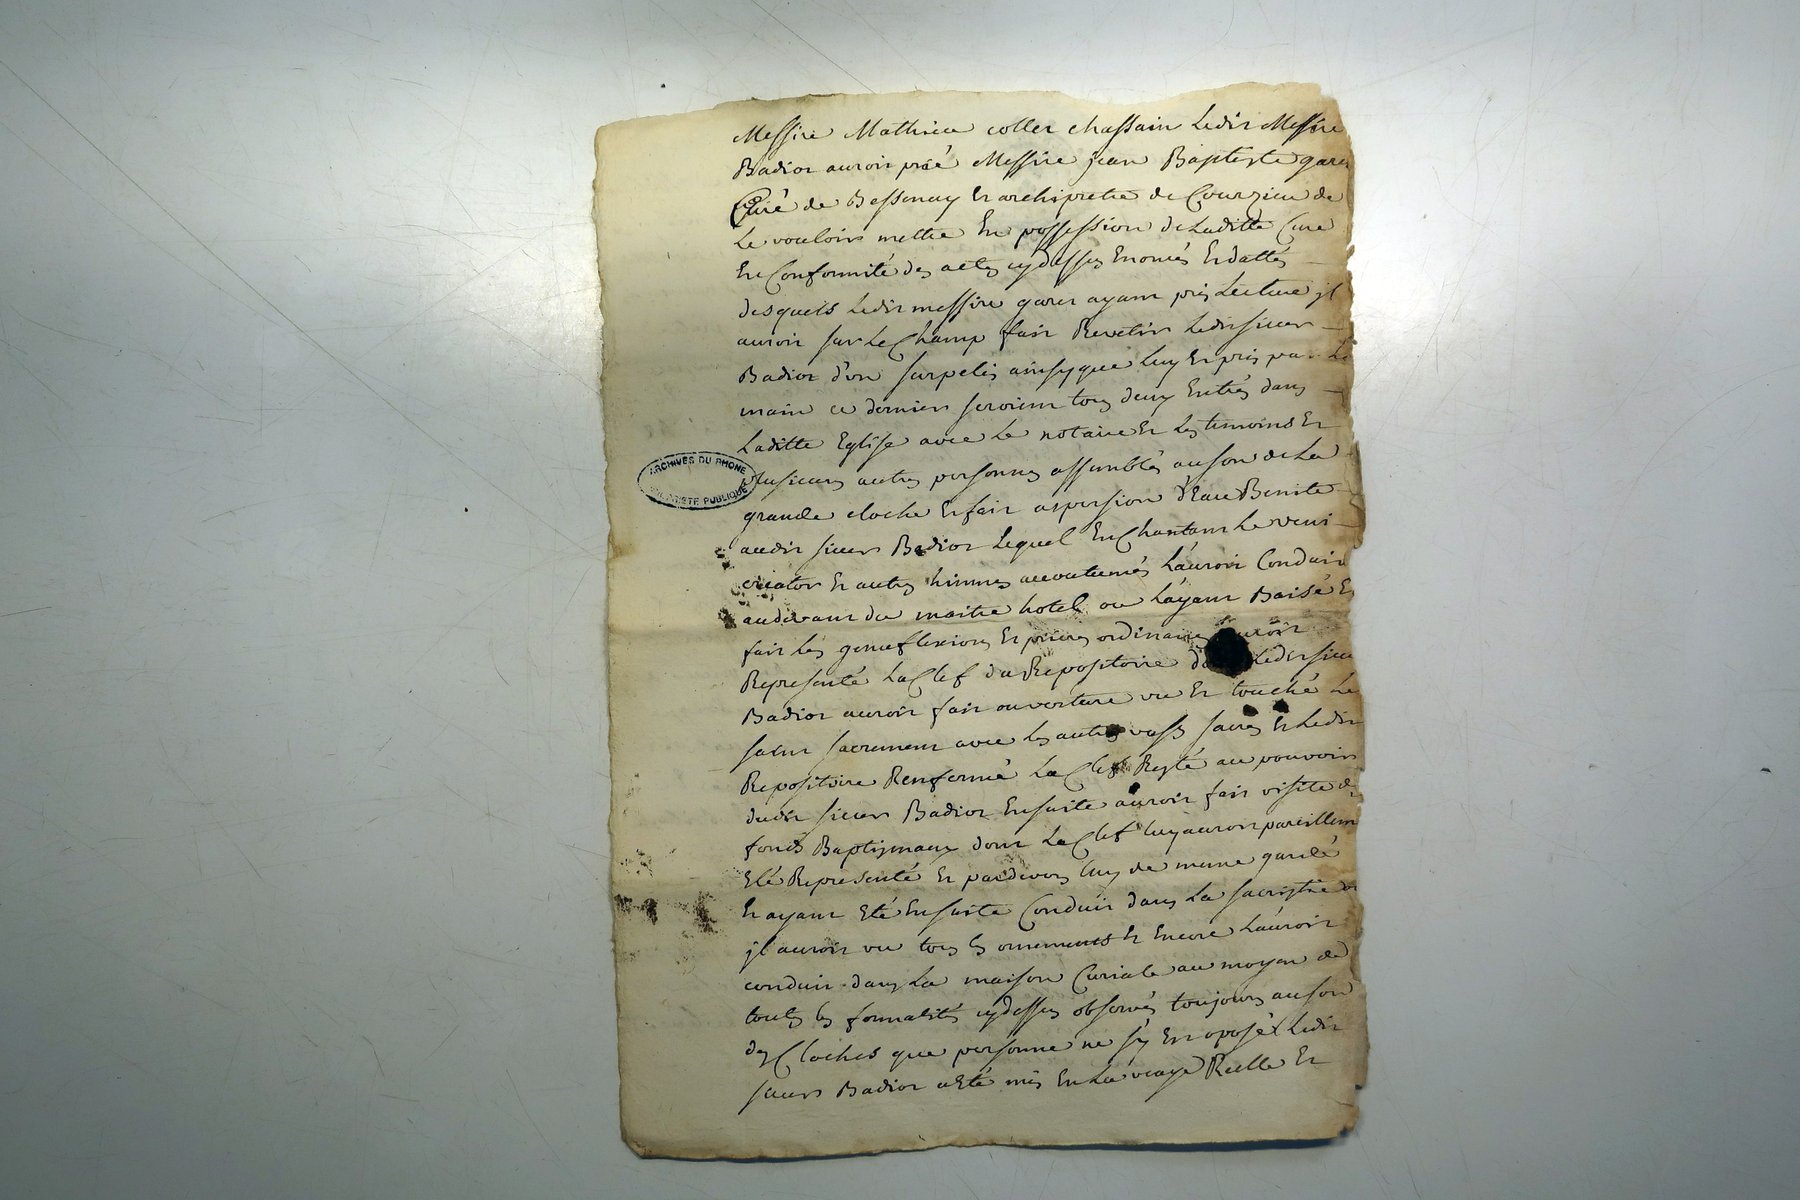 Messire Mathieu collet chassain Ledit Messire
Badiot auroit prié Messire jean Baptiste garet
Curé de Bessenay Et archipretre de Courzieu de
Le vouloir mettre En possession de Laditte Cure
En Conformité des actes cydessus Enoncés Et dattés
desquels Ledit messire garet ayant pris Lecture jl
auroit sur Le Champ fait Revetir Ledit sieur
Badiot d'un surpelis ainsy que Luy Et pris par La
main ce dernier seroient tous deux Entrés dans
Laditte Eglise avec Le notaire Et Les temoins Et
plusieurs autres personnes assemblés au son de La
grande cloche Et fait aspersion d'Eau Benite
audit sieur Badiot Lequel En Chantant Le veni
creator Et autres himnes accoutumés L'auroit Conduit
audevant du maitre hotel ou L'ayant Baisé Et
fait Les genuflexions Et prieres ordinaires auroit
Representé La Clef du Repositoire Ledit sieur
Badiot auroit fait ouverture vu Et touché Le
saint sacrement avec Les autres vases sacrés Et Ledit
Repositoire Renfermé La Clef Resté au pouvoir
dudit sieur Badiot Ensuite auroit fait visite des
fonds Baptismaux dont La Clef luy auroit pareillement
Eté Representé Et pardevers luy de meme gardé
Et ayant Eté Ensuite Conduit dans La sacristie
jl auroit vu tous les ornements Et Encore L'auroit
conduit dans La maison Curiale au moyen de
toutes les formalités cydessus observés toujours au son
des Cloches que personne ne s'y Est oposé Ledit
sieur Badiot a Eté mis En La vraye Reelle Et
ARCHIVES DU RHONE
PUBLIQUE